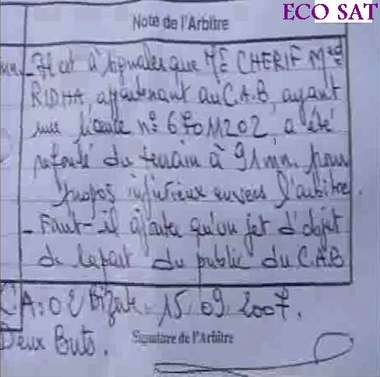 ECO SAT
Note de l'Arbitre
- Il est à signaler que Mr CHERIF Med
RIDHA, appartenant au C.A.B, ayant
une licence n° 67011202 a été
refoulé du terrain à 91 mn. pour
propos injurieux envers l'arbitre.
- Faut-il ajouter qu'un jet d'objet
de la part du public du C.A.B
Bizerte 15 09 2007.
Deux Buts.
Signature de l'Arbitre